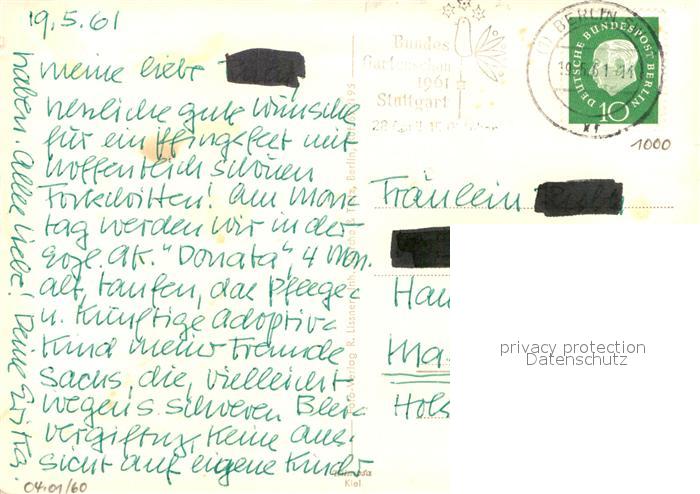 19.5.61
Meine liebe
herzliche gute Wünsche
für ein Pfingstfest mit
hoffentlich schönen
Fortschritten! Am Mon=
tag werden wir in der
"Donata", 4 Mon.
alt, taufen, das Pflege=
u. künftige Adoptiv=
Kind meiner Freunde
Sachs, die, vielleicht
wegen s. schweren Blei=
vergiftung, keine Aus=
sicht auf eigene Kinder
haben. Alles Liebe! Deine Erika.
04.01/60
Bundes
Gartenschau
1961
Stuttgart
BERLIN
DEUTSCHE BUNDESPOST BERLIN
10
1000
Fräulein
Hau
Ma
Hols
privacy protection
Datenschutz
Kiel